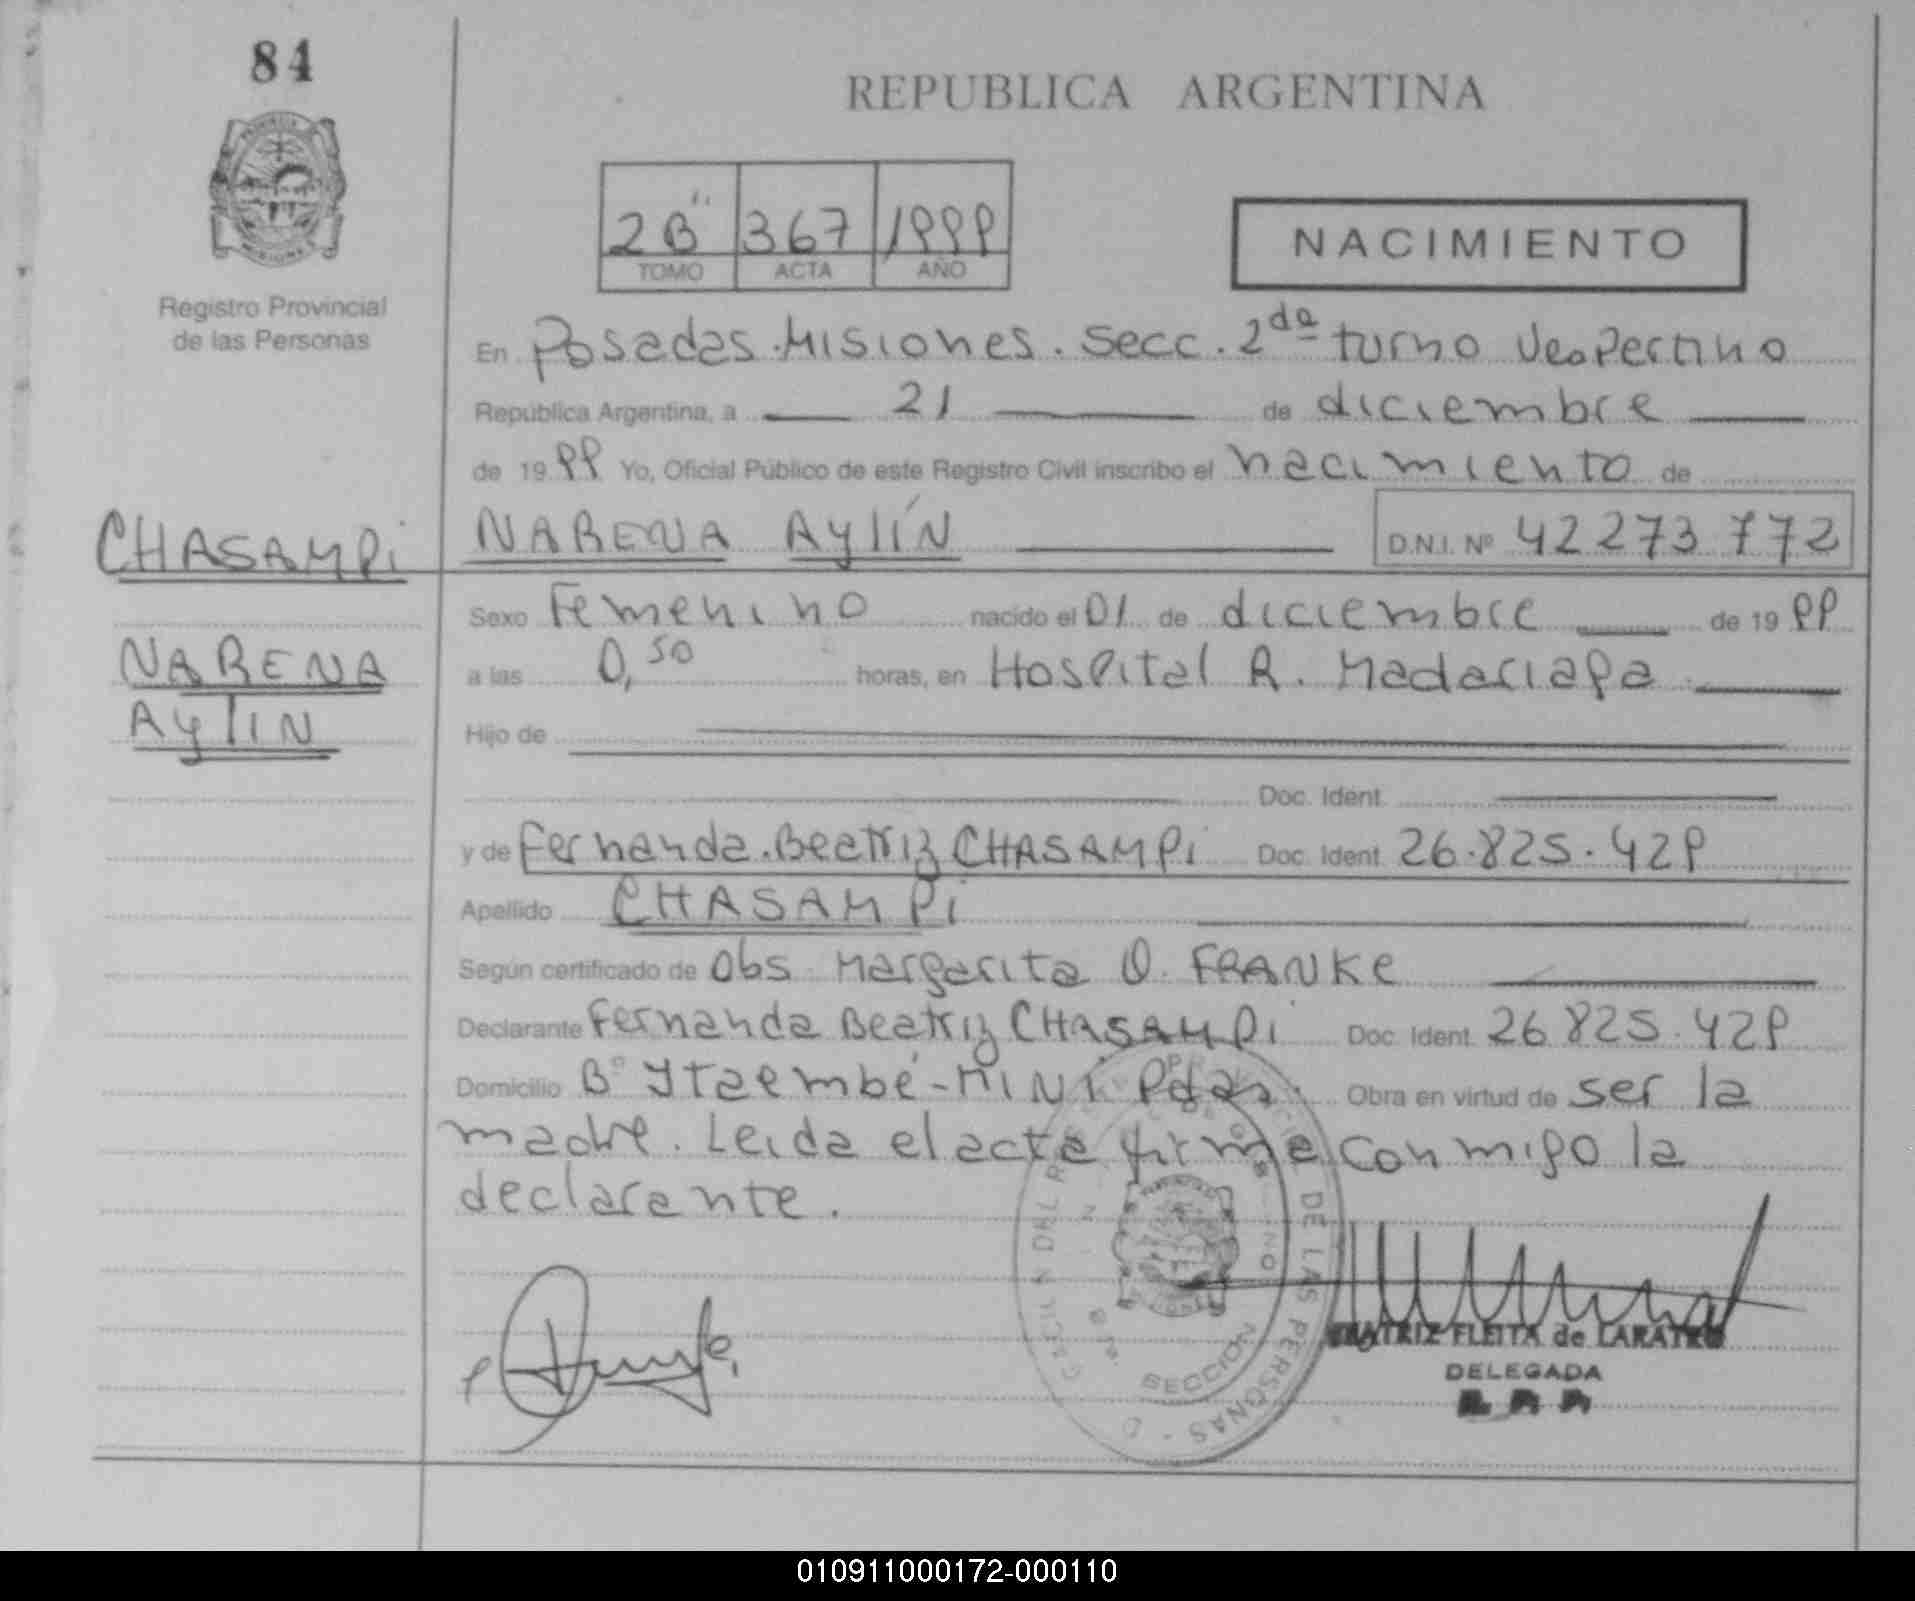 84
REPUBLICA ARGENTINA
2B" 367 1999
TOMO ACTA AÑO
NACIMIENTO
Registro Provincial
de las Personas
En Posadas. Misiones. Secc. 2da turno Vespertino
República Argentina, a 21 de diciembre
de 1999 Yo, Oficial Público de este Registro Civil inscribo el nacimiento de
CHASAMPi NARENA AylíN D.N.I. Nº 42273772
Sexo Femenino nacido el 01 de diciembre de 1999
NARENA
AylIN
a las 0,50 horas, en Hospital R. Madariaga
Hijo de
Doc. Ident.
y de Fernanda. Beatriz CHASAMPi Doc. Ident. 26.825.429
Apellido CHASAMPi
Según certificado de Obs. Margarita O. FRANKe
Declarante Fernanda Beatriz CHASAMPi Doc. Ident. 26825.429
Domicilio Bº Ytaembé-MINi Pdas. Obra en virtud de ser la
madre. Leida el acta firma conmigo la
declarante.
DE LAS PERSONAS
SECCION
BEATRIZ FLEITA de LARATRO
DELEGADA
010911000172-000110